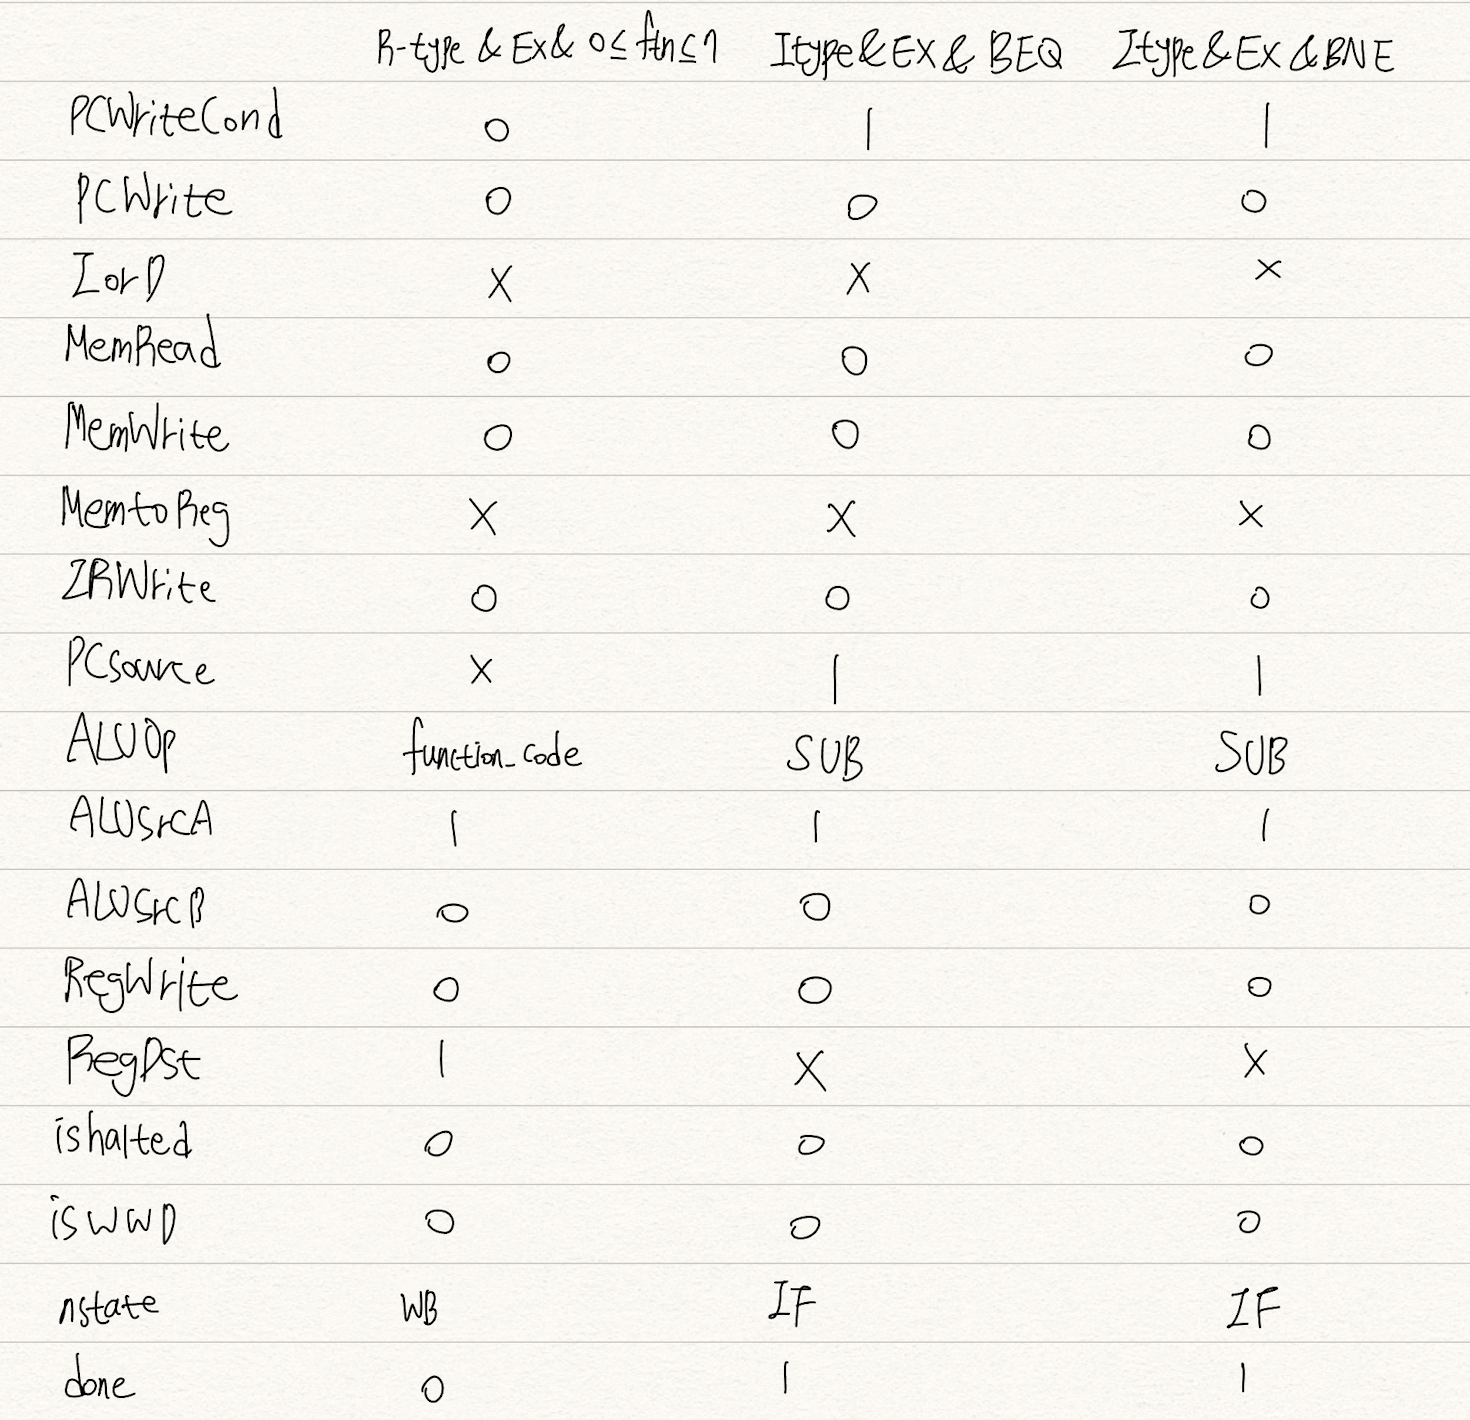 R-type & Ex & 0 ≤ ftn ≤ 7 Itype & EX & BEQ Itype & Ex & BNE
PCWriteCond 0 1 1
PCWrite 0 0 0
IorD X X X
MemRead 0 0 0
MemWrite 0 0 0
MemtoReg X X X
IRWrite 0 0 0
PCsource X 1 1
ALUOp function_code SUB SUB
ALUSrcA 1 1 1
ALUSrcB 0 0 0
RegWrite 0 0 0
RegDst 1 X X
ishalted 0 0 0
isWWD 0 0 0
nstate WB IF IF
done 0 1 1